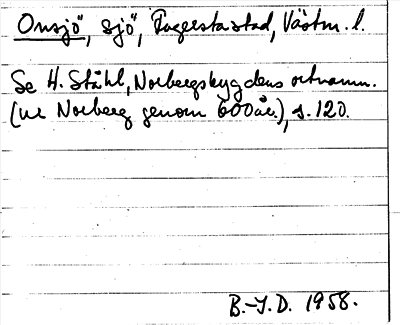 Onsjö, sjö, Fagersta stad, Västm. l.
Se H. Ståhl, Norbergsbygdens ortnamn.
(ur Norberg genom 600 år), s. 120.
B.-I.D. 1958.